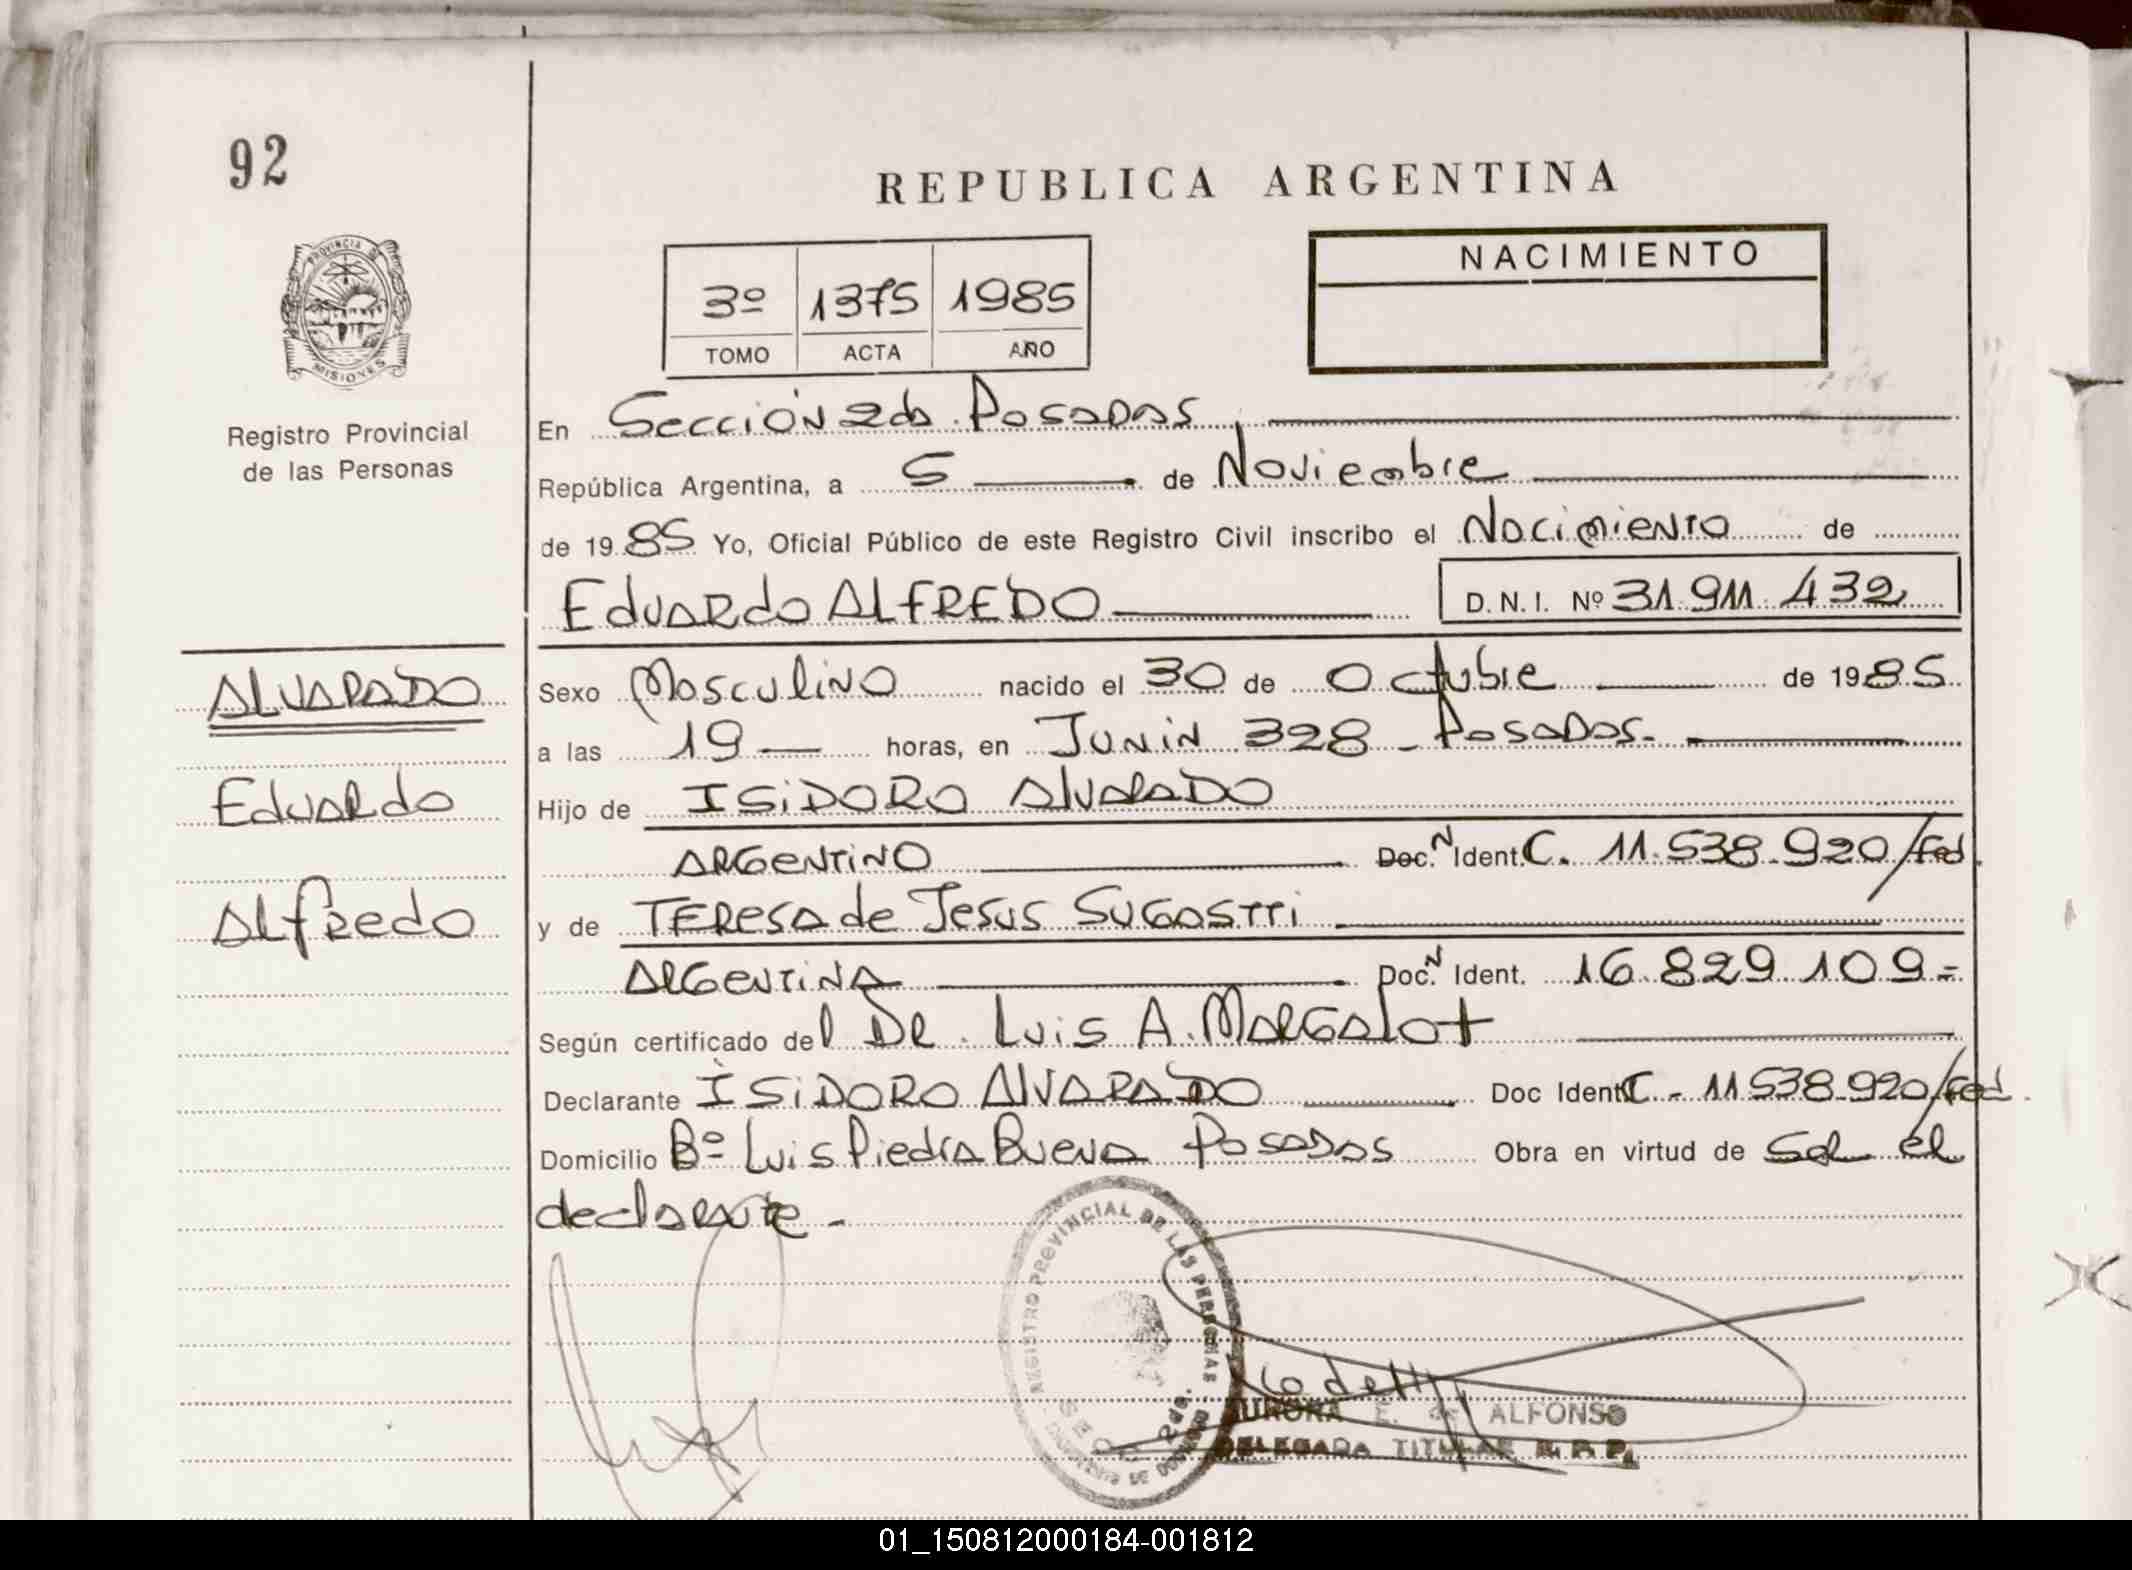 92
REPUBLICA ARGENTINA
PROVINCIA DE
MISIONES
Registro Provincial
de las Personas
3º 1375 1985
TOMO ACTA AÑO
NACIMIENTO
En Sección 2da Posadas
República Argentina, a 5 de Noviembre
de 1985 Yo, Oficial Público de este Registro Civil inscribo el Nacimiento de
Eduardo ALFREDO D. N. I. Nº 31.911.432
ALVARADO
Eduardo
Alfredo
Sexo Masculino nacido el 30 de Octubre de 1985
a las 19 horas, en Junin 328 - Posadas.
Hijo de ISIDORO Alvarado
ARGENTINO Doc. N Ident. C. 11.538.920/Fed.
y de TERESA de Jesus SUGASTTI
ARGENTINA Doc. N Ident. 16.829.109=
Según certificado del Dr. Luis A. Margalot
Declarante ISIDORO ALVARADO Doc Ident C. - 11538.920/Fed.
Domicilio Bº Luis Piedra Buena Posadas Obra en virtud de Ser el
declarante -
REGISTRO PROVINCIAL DE LAS PERSONAS
SECC. 2da.
AURORA E. de ALFONSO
DELEGADA TITULAR R. P. P.
01_150812000184-001812